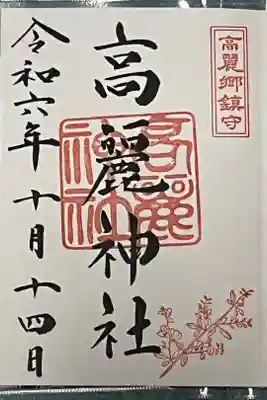 高麗郷鎮守
高麗神社
高麗
神社
令和六年十月十四日